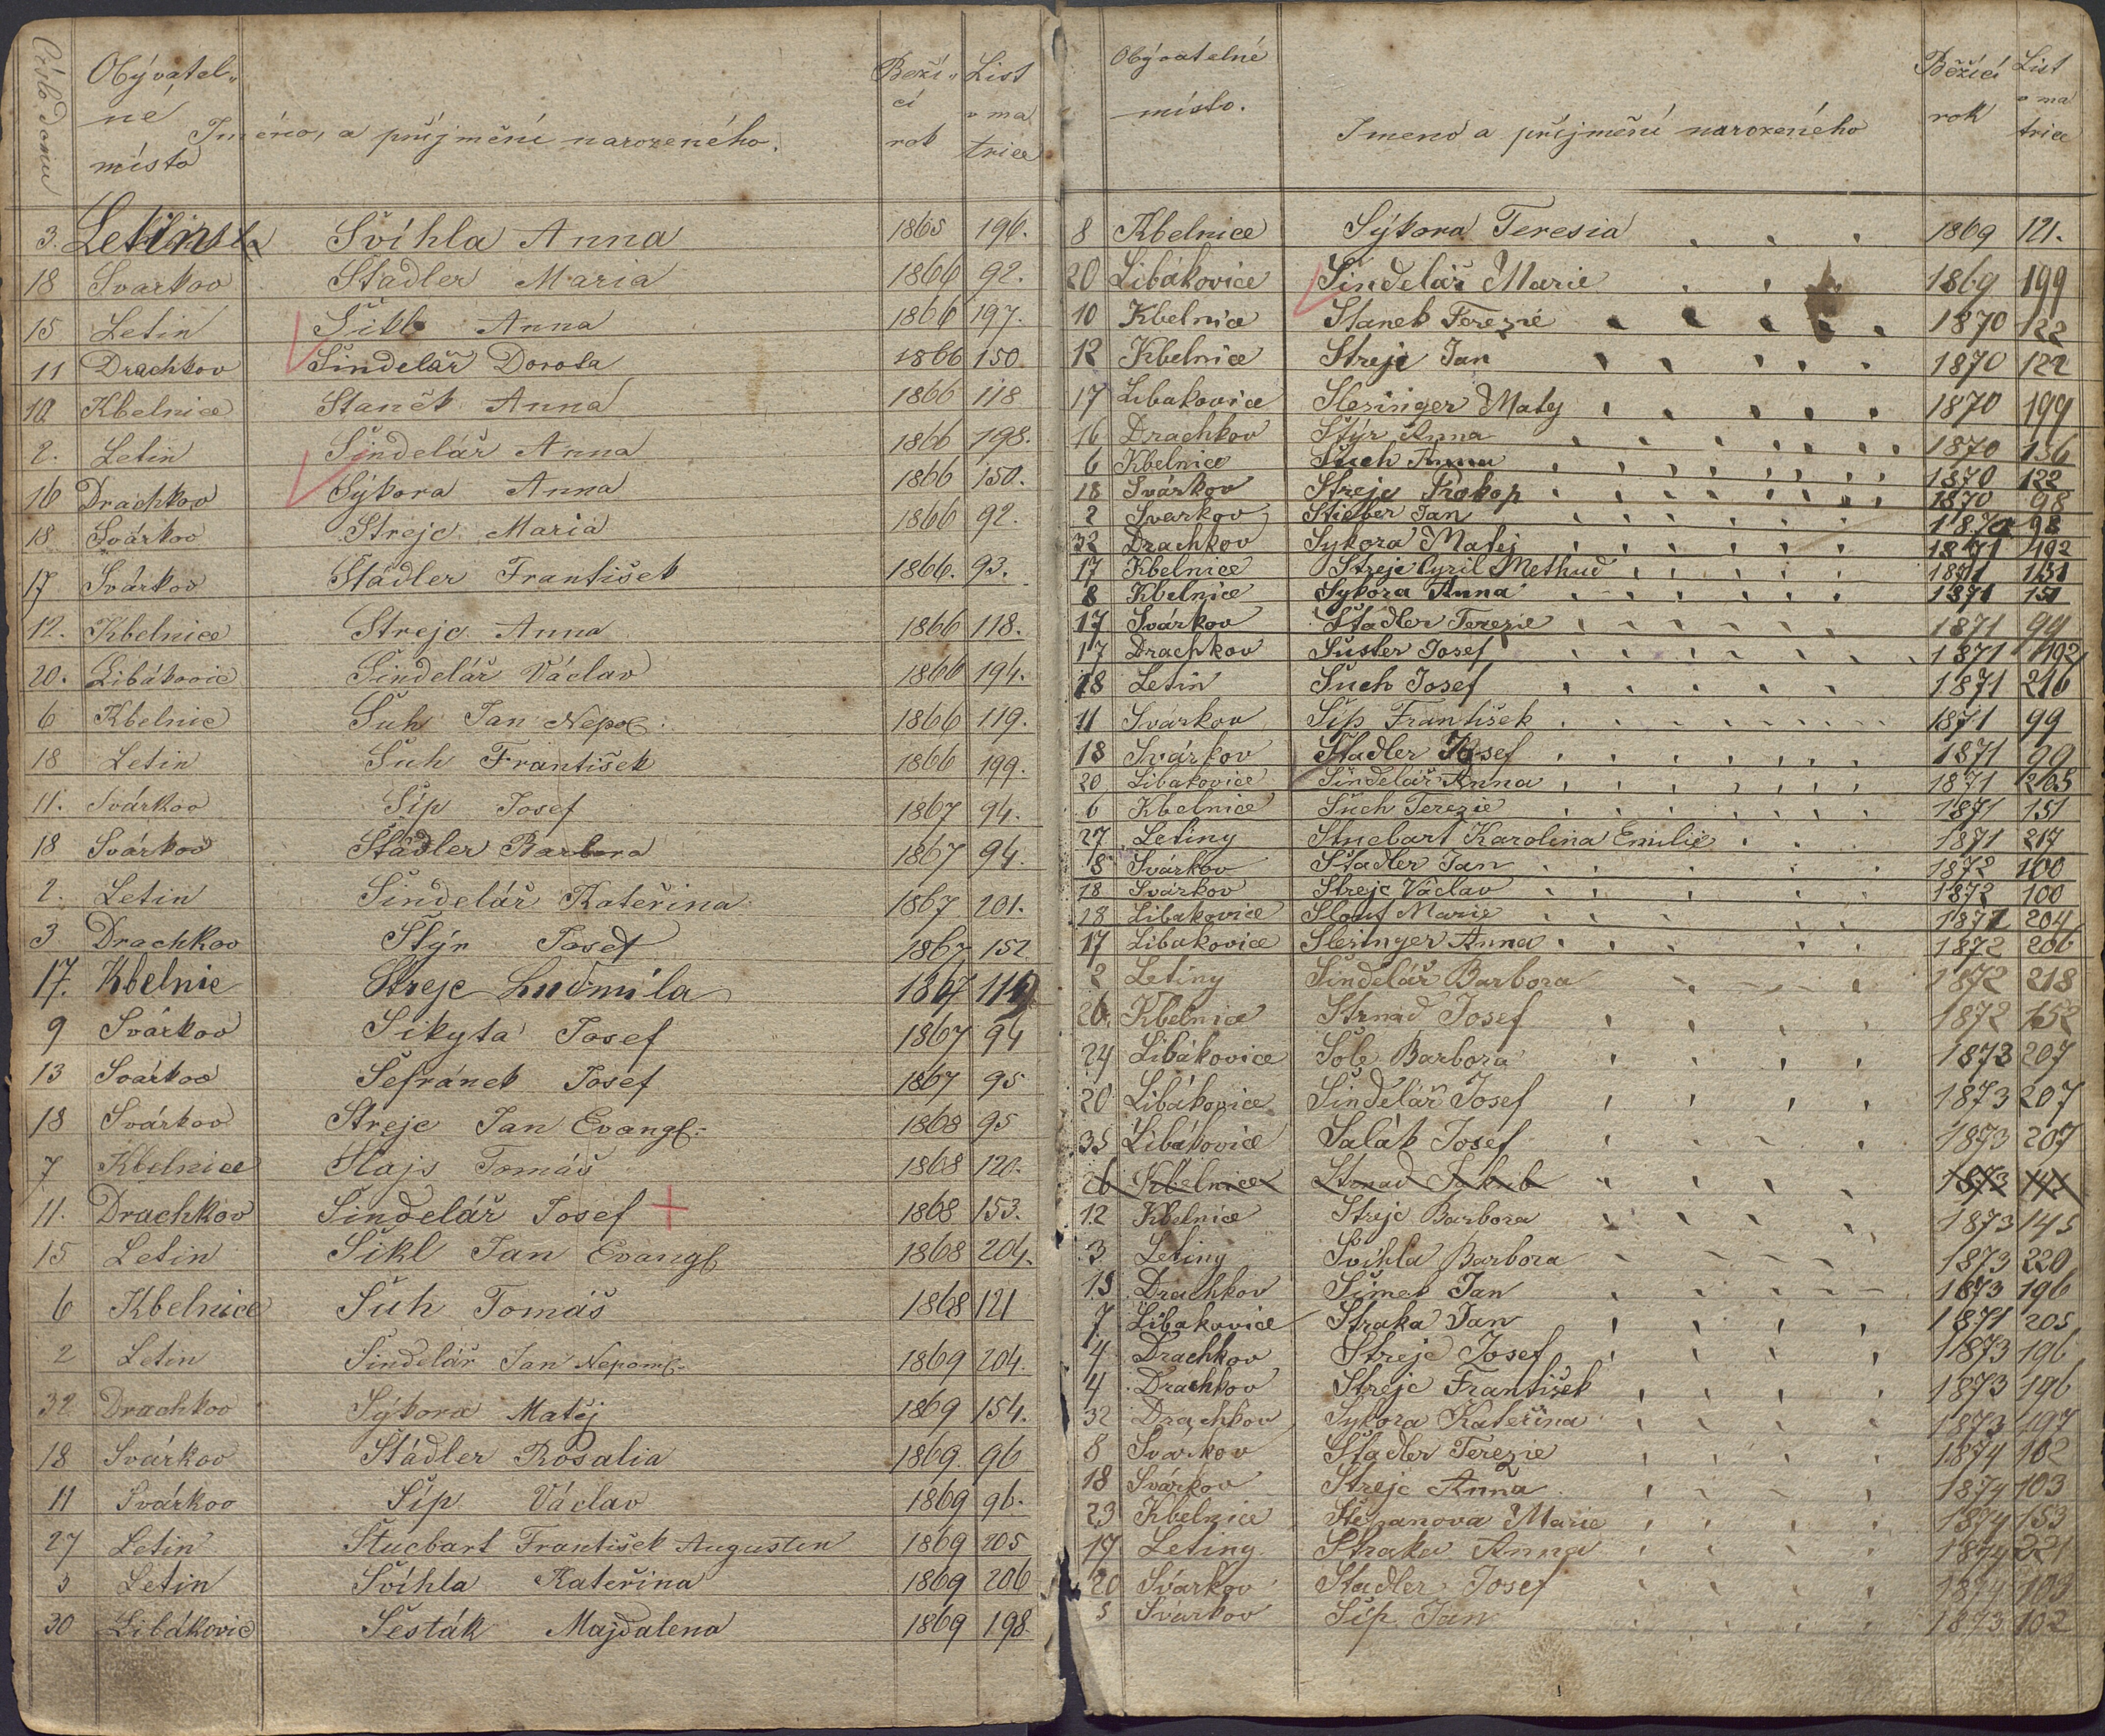 Číslo domu
Obývatel-
né
místo
Iméno, a příjmění narozeného.
Beží-
cí
rok
List
v ma
trice
3. Letinsta Švíhla Anna 1865 196.
18 Svarkov Stadler Maria 1866 92.
15 Letin Šikl Anna 1866 197.
11 Drachkov Šindelář Dorota 1866 150
10. Kbelnice Staněk Anna 1866 118
2. Letin Šindelář Anna 1866 198.
16 Drachkov Sýkora Anna 1866 150.
18 Svárkov Strejc Maria 1866 92.
17 Svárkov Städler František 1866. 93.
12. Kbelnice Strejc Anna 1866 118.
20. Libákovic Šindelář Václav 1866 194.
6 Kbelnic Šuh Jan Nepo. 1866 119.
18 Letin Šuh František 1866 199.
11. Svárkov Šíp Josef 1867 94.
18 Svárkov Städler Barbora 1867 94.
2. Letin Šindelář Kateřina 1867 201.
3 Drachkov Štýr Josef 1867 152
17. Kbelnic Strejc Ludmíla 1867 119
9 Svárkov Sikyta Josef 1867 94
13 Svárkov Šefránek Josef 1867 95
18 Svárkov Strejc Jan Evangl: 1868 95
7 Kbelnice Slajs Tomáš 1868 120.
11. Drachkov Šindelář Josef + 1868 153.
15 Letin Šikl Jan Evangl 1868 204.
6 Kbelnice Šuh Tomáš 1868 121
2 Letin Šindelář Jan Nepom: 1869 204.
32 Drachkov Sýkora Matěj 1869 154.
18 Svárkov Städler Rosalia 1869. 96
11 Svárkov Šíp Václav 1869 96.
27 Letin Stucbart František Augustin 1869 205
3 Letin Švíhla Kateřina 1869 206
30 Libákovic Šesták Majdalena 1869 198.
Obývatelné
místo.
Imeno a příjmění narozeného
Běžící
rok
List
v ma
trice
8 Kbelnice Sýkora Teresia 1869 121.
20 Libákovice Šindelář Marie 1869 199
10 Kbelnice Stanek Terezie 1870 122
12 Kbelnice Strejc Jan 1870 122
17 Libakovice Slesinger Matěj 1870 199
16 Drachkov Štýr Anna 1870 156
6 Kbelnice Šuch Anna 1870 122
18 Svárkov Strejc Prokop 1870 98
2 Svarkov Stieber Jan 1870 98
32 Drachkov Sykora Matěj 1871 192
17 Kbelnice Strejc Cyril Methud 1871 151
8 Kbelnice Sykora Anna 1871 151
17 Svárkov Stadler Terezie 1871 99
17 Drachkov Šuster Josef 1871 192
18 Letin Šuch Josef 1871 216
11 Svarkov Šíp František 1871 99
18 Svárkov Stadler Josef 1871 99
20 Libakovice Šindelář Anna 1871 203
6 Kbelnice Šuch Terezie 1871 151
27 Letiny Stucbart Karolina Emilie 1871 217
8 Svárkov Stadler Jan 1872 100
18 Svárkov Strejc Václav 1872 100
28 Libakovice Slouf Marie 1872 204
17 Libakovice Slesinger Anna 1872 206
2 Letiny Šindelář Barbora 1872 218
26. Kbelnice Strnad Josef 1872 152
24 Libákovice Šole Barbora 1873 207
20 Libákovice Šindelář Josef 1873 207
35 Libákovice Salák Josef 1873 207
26 Kbelnice Strnad Jakub 1873
12 Kbelnice Strejc Barbora 1873 145
3 Letiny Švihla Barbora 1873 220
15 Drachkov Šimek Jan 1873 196
7 Libakovice Straka Jan 1871 205
4 Drachkov Strejc Josef 1873 196
4 Drachkov Strejc František 1873 196
32 Drachkov Sykora Kateřina 1873 197
8 Svárkov Stadler Terezie 1874 102
18 Svárkov Strejc Anna 1874 103
23 Kbelnice Štěpanova Marie 1874 153
17 Letiny Straka Anna 1874 221
20 Svárkov Stadler Josef 1874 103
5 Svárkov Šíp Jan 1873 102